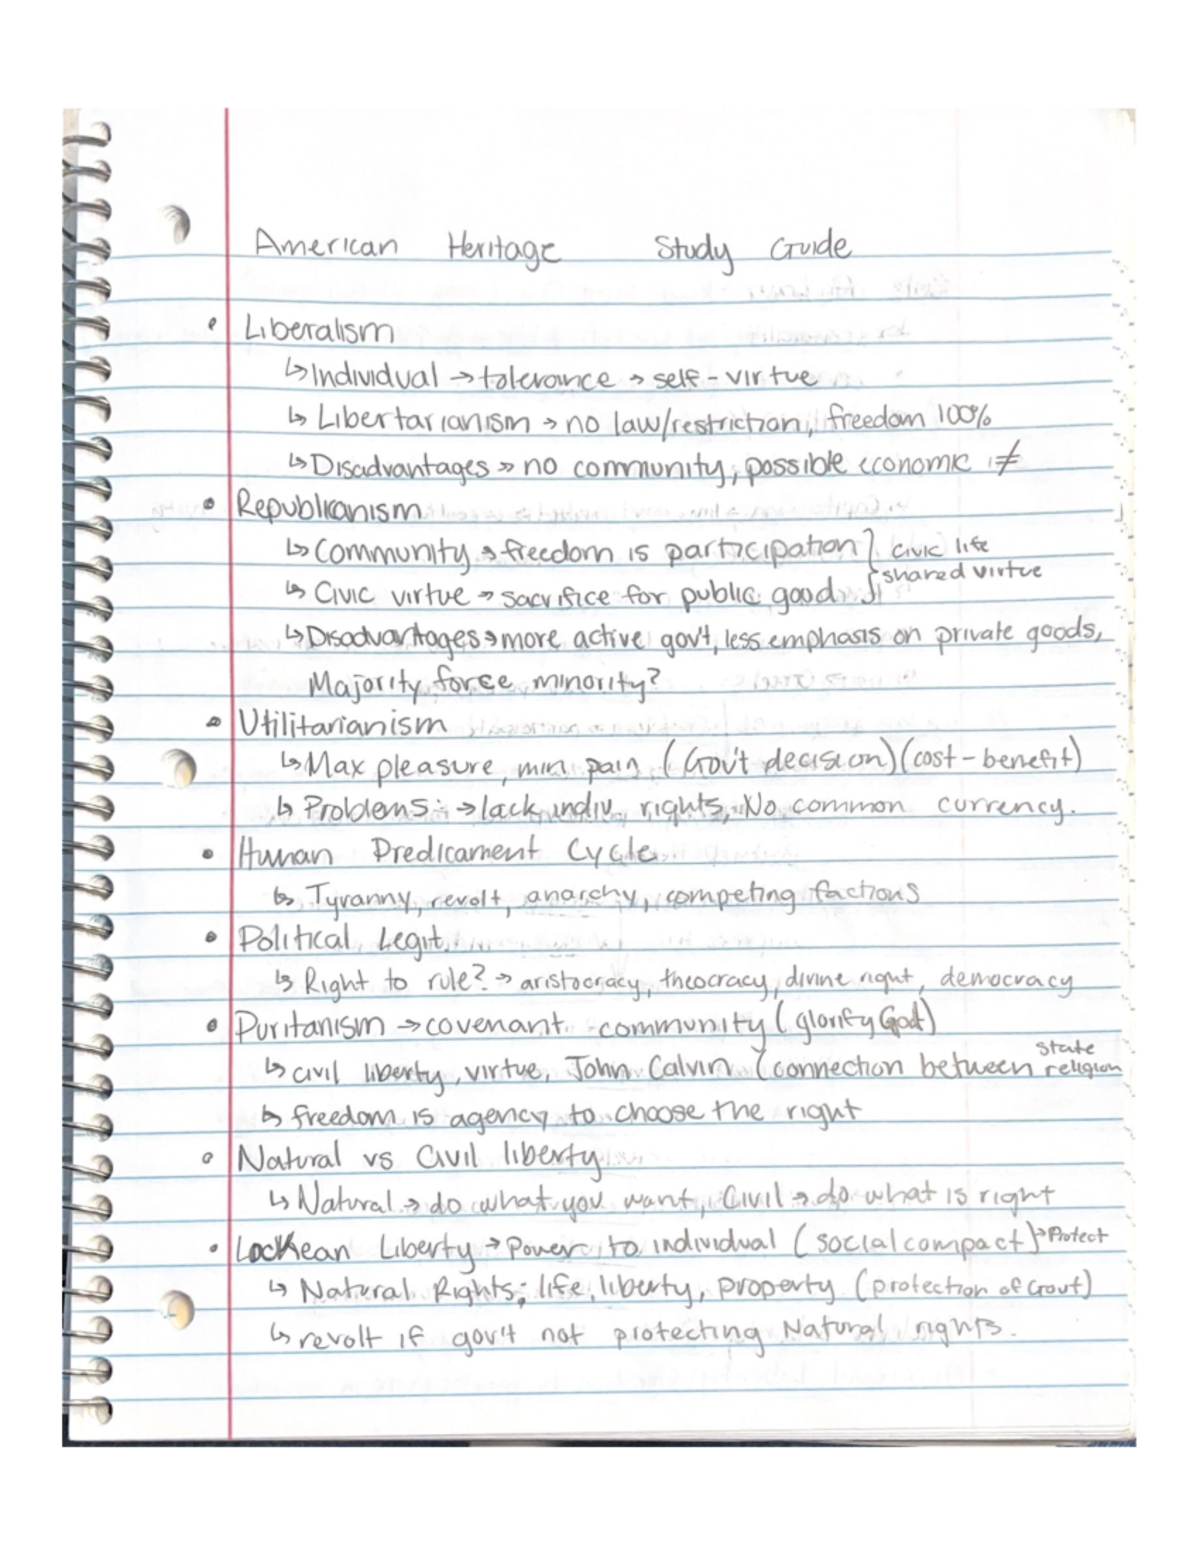 American Heritage Study Guide
• Liberalism
↳ Individual → tolerance → self-virtue
↳ Libertarianism → no law/restriction, freedom 100%
↳ Disadvantages → no community, possible economic ≠
• Republicanism
↳ Community → freedom is participation } civic life
shared virtue
↳ Civic virtue → sacrifice for public good
↳ Disadvantages → more active gov't, less emphasis on private goods,
Majority force minority?
• Utilitarianism
↳ Max pleasure, min pain (Gov't decision) (cost-benefit)
↳ Problems: → lack indiv. rights, No common currency.
• Human Predicament Cycle
↳ Tyranny, revolt, anarchy, competing factions
• Political Legit.
↳ Right to rule? → aristocracy, theocracy, divine right, democracy
• Puritanism → covenant community (glorify God)
↳ civil liberty, virtue, John Calvin (connection between state
religion
↳ freedom is agency to choose the right
• Natural vs Civil liberty
↳ Natural → do what you want, Civil → do what is right
• Lockean Liberty → Power to individual (social compact) → Protect
↳ Natural Rights; life, liberty, property (protection of Govt)
↳ revolt if gov't not protecting Natural rights.